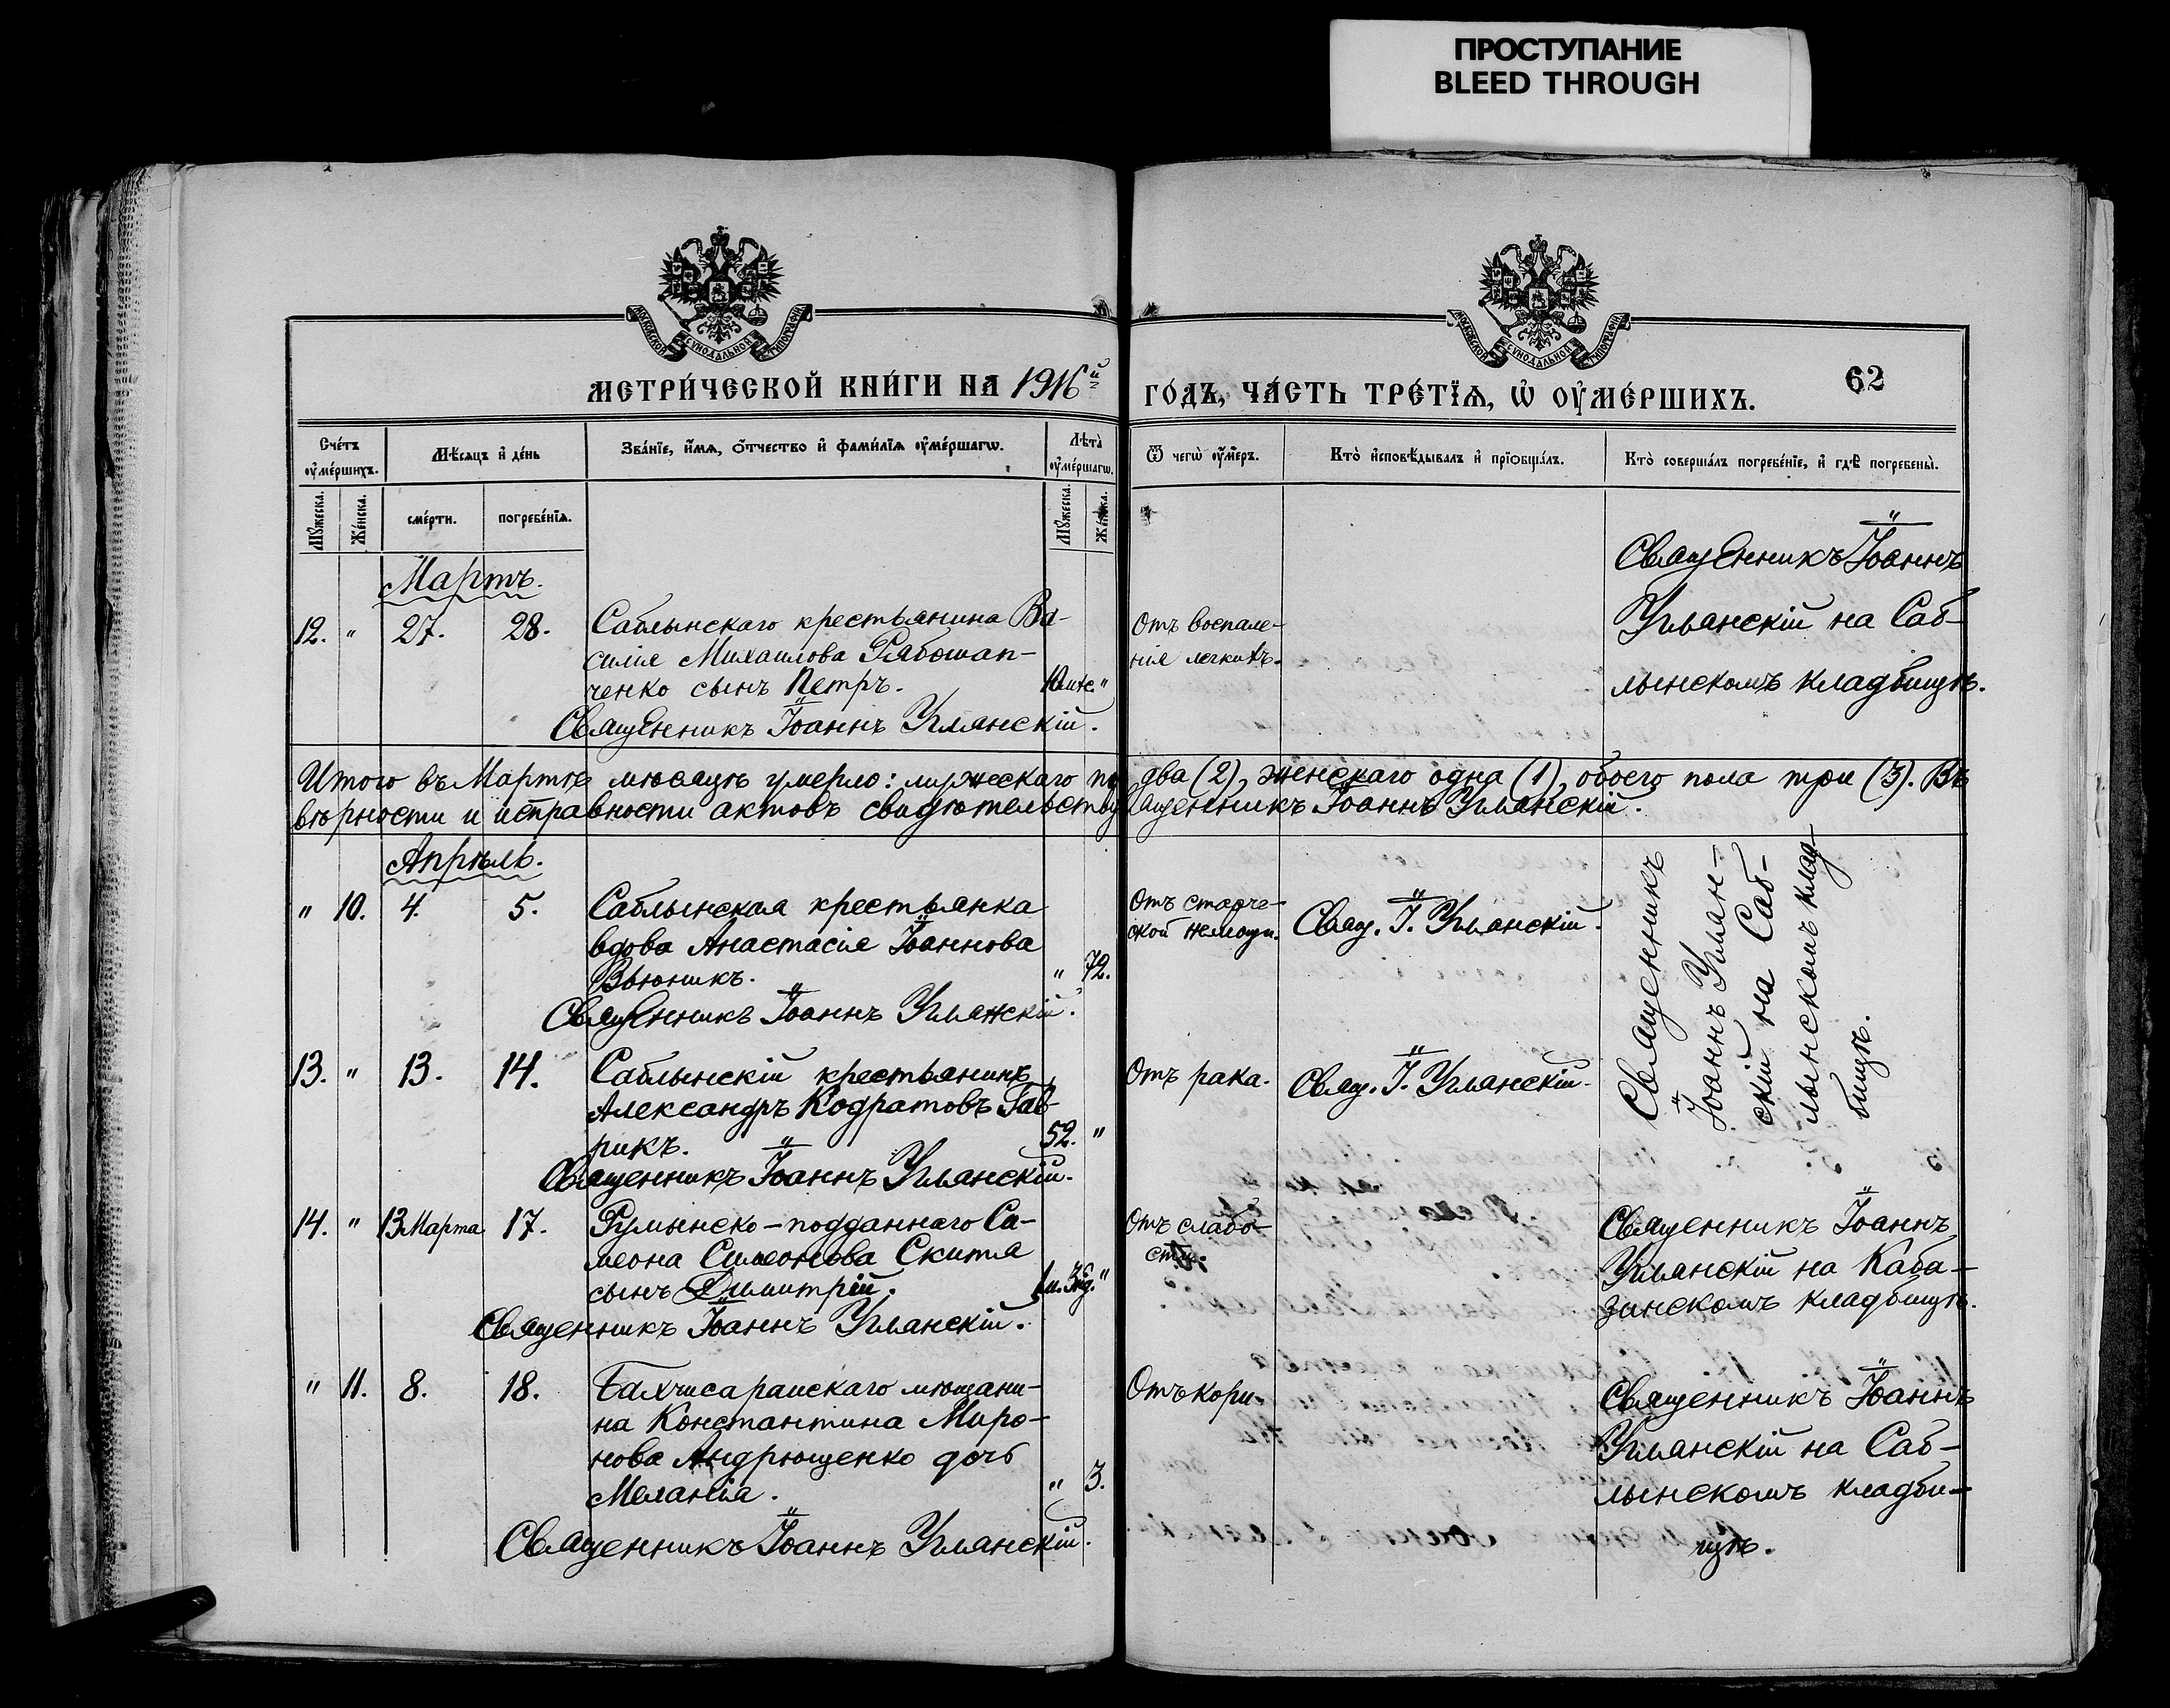 ПРОСТУПАНИЕ
BLEED THROUGH
МОСКОВСКОЙ СѴНОДАЛЬНОЙ ТИПОГРАФІИ
МОСКОВСКОЙ СѴНОДАЛЬНОЙ ТИПОГРАФІИ
МЕТРИ́ЧЕСКОЙ КНИ́ГИ НА 1916й
ГО́ДЪ, ЧА́СТЬ ТРЕ́ТЇѦ, Ѡ҆ ОУ҆МЕ́РШИХЪ.
62
Сче́тъ оу҆ме́ршихъ.
Мѣ́сяцъ и҆ де́нь
Зва́нїе, и҆́мѧ, о҆́тчество и҆ фами́лїѧ оу҆ме́ршагѡ.
Лѣ́та оу҆ме́ршагѡ.
Ѿ чегѡ̀ оу҆́меръ.
Кто̀ и҆сповѣ́дывалъ и҆ прїѡбща́лъ.
Кто̀ соверша́лъ погребе́нїе, и҆ гдѣ̀ погребены̀.
Мꙋ́жеска.
Же́нска.
сме́рти.
погребе́нїѧ.
Мꙋ́жеска.
Же́нска.
Мартъ.
12. " 27. 28. Саблынскаго крестьянина Ва-
силія Михаилова Рябошап-
ченко сынъ Петръ.
Священникъ Іоаннъ Углянскій.
Отъ воспале-
нія легкихъ.
Священникъ Іоаннъ
Углянскій на Саб-
лынскомъ кладбищѣ.
Итого въ Мартѣ мѣсяцѣ умерло: мужескаго по два (2), женскаго одна (1), обоего пола три (3). Въ
вѣрности и исправности актовъ свидѣтельству Священникъ Іоаннъ Углянскій.
Апрѣль.
" 10. 4. 5. Саблынская крестьянка
вдова Анастасія Іоаннова
Вьюникъ. " 72.
Священникъ Іоаннъ Углянскій.
Отъ старче-
ской немощи.
Свящ. І. Углянскій.
Священникъ
Іоаннъ Углян-
скій на Саб-
лынскомъ клад-
бищѣ.
13. " 13. 14. Саблынскій крестьянинъ
Александръ Кодратовъ Гав-
рикъ. 52. "
Священникъ Іоаннъ Углянскій.
Отъ рака.
Свящ. І. Углянскій.
14. " 13 Марта 17. Румынско-подданнаго Си-
меона Симеонова Скитя
сынъ Димитрій.
Священникъ Іоаннъ Углянскій.
Отъ слабо-
сти.
Священникъ Іоаннъ
Углянскій на Каба-
зинскомъ кладбищѣ.
" 11. 8. 18. Бахчисарайскаго мѣщани-
на Константина Миро-
нова Андрющенко дочь
Меланія. " 3.
Священникъ Іоаннъ Углянскій.
Отъ кори.
Священникъ Іоаннъ
Углянскій на Саб-
лынскомъ кладби-
щѣ.